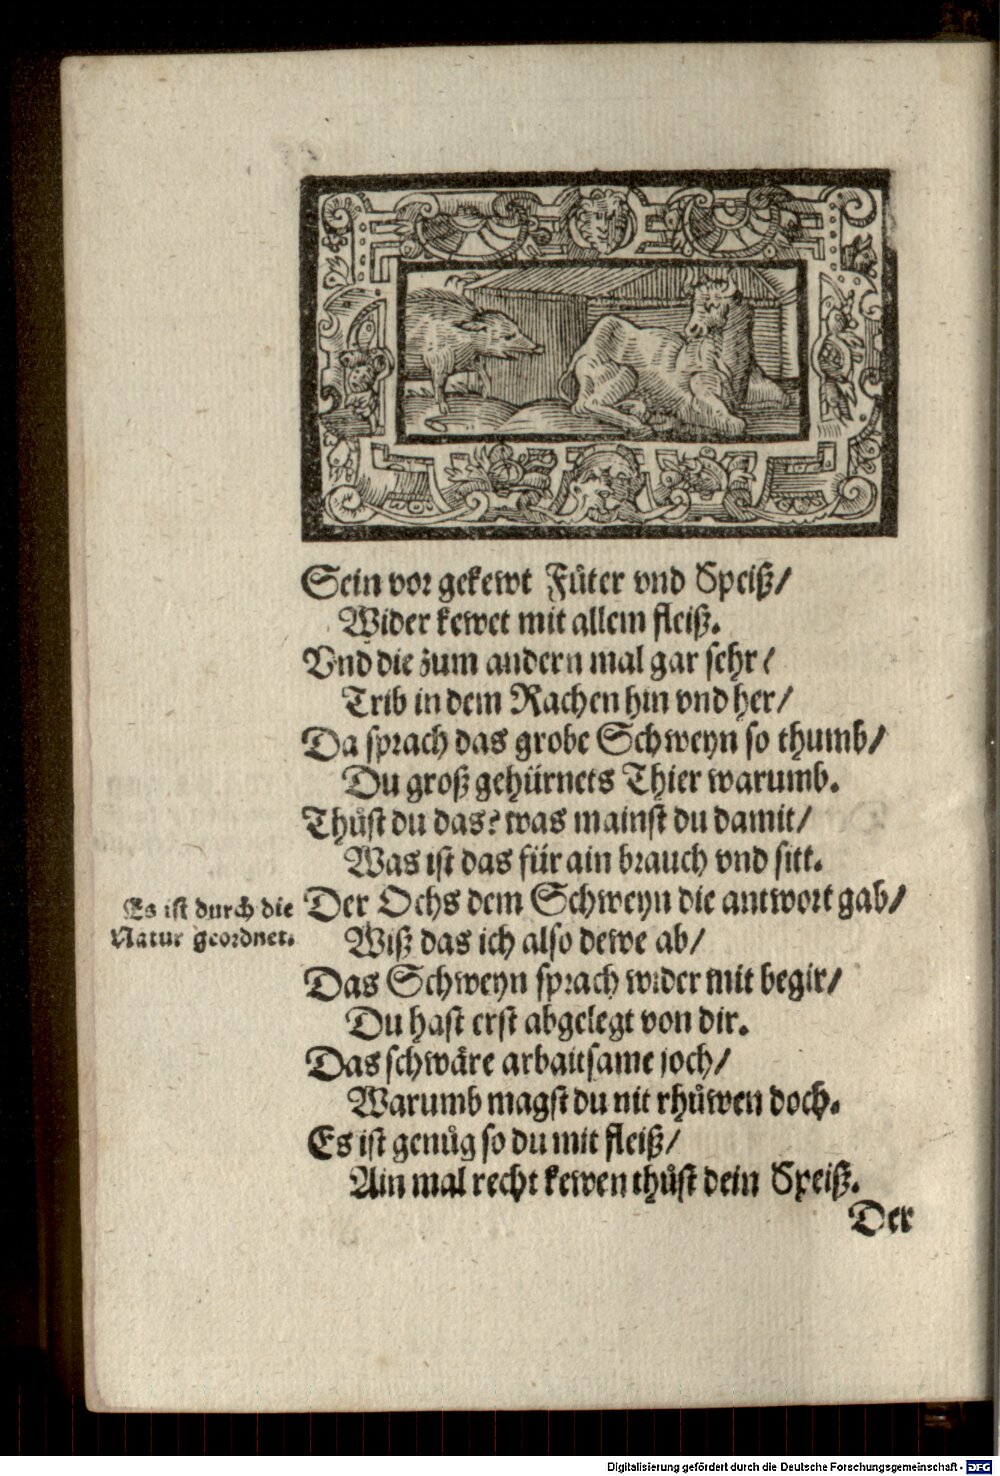 Sein vor gekewt Fůter vnd Speiß/
Wider kewet mit allem fleiß.
Vnd die zum andern mal gar sehr/
Trib in dem Rachen hin vnd her/
Da sprach das grobe Schweyn so thumb/
Du groß gehürnets Thier warumb.
Thůst du das? was mainst du damit/
Was ist das für ain brauch vnd sitt.
Es ist durch die
Natur geordnet.
Der Ochs dem Schweyn die antwort gab/
Wiß das ich also dewe ab/
Das Schweyn sprach wider mit begir/
Du hast erst abgelegt von dir.
Das schwäre arbaitsame joch/
Warumb magst du nit rhůwen doch.
Es ist genůg so du mit fleiß/
Ain mal recht kewen thůst dein Speiß.
Der
Digitalisierung gefördert durch die Deutsche Forschungsgemeinschaft - DFG